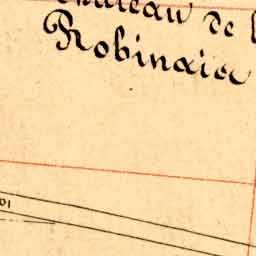 Château de l
Robinaie